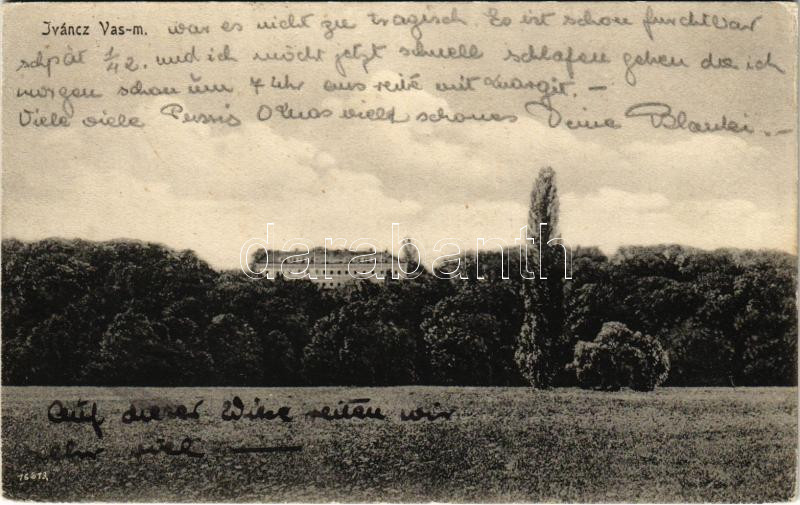 Iváncz Vas-m. war es nicht zu tragisch. Es ist schon furchtbar
spät 1/42. und ich möcht jetzt schnell schlafen gehen da ich
morgen schon um 7 Uhr ausreite mit Margit. —
Viele viele Pussis Omas vielt schones Deine Blanki. —
darabanth.com
Auf dieser Wiese reiten wir
sehr viel —
16673